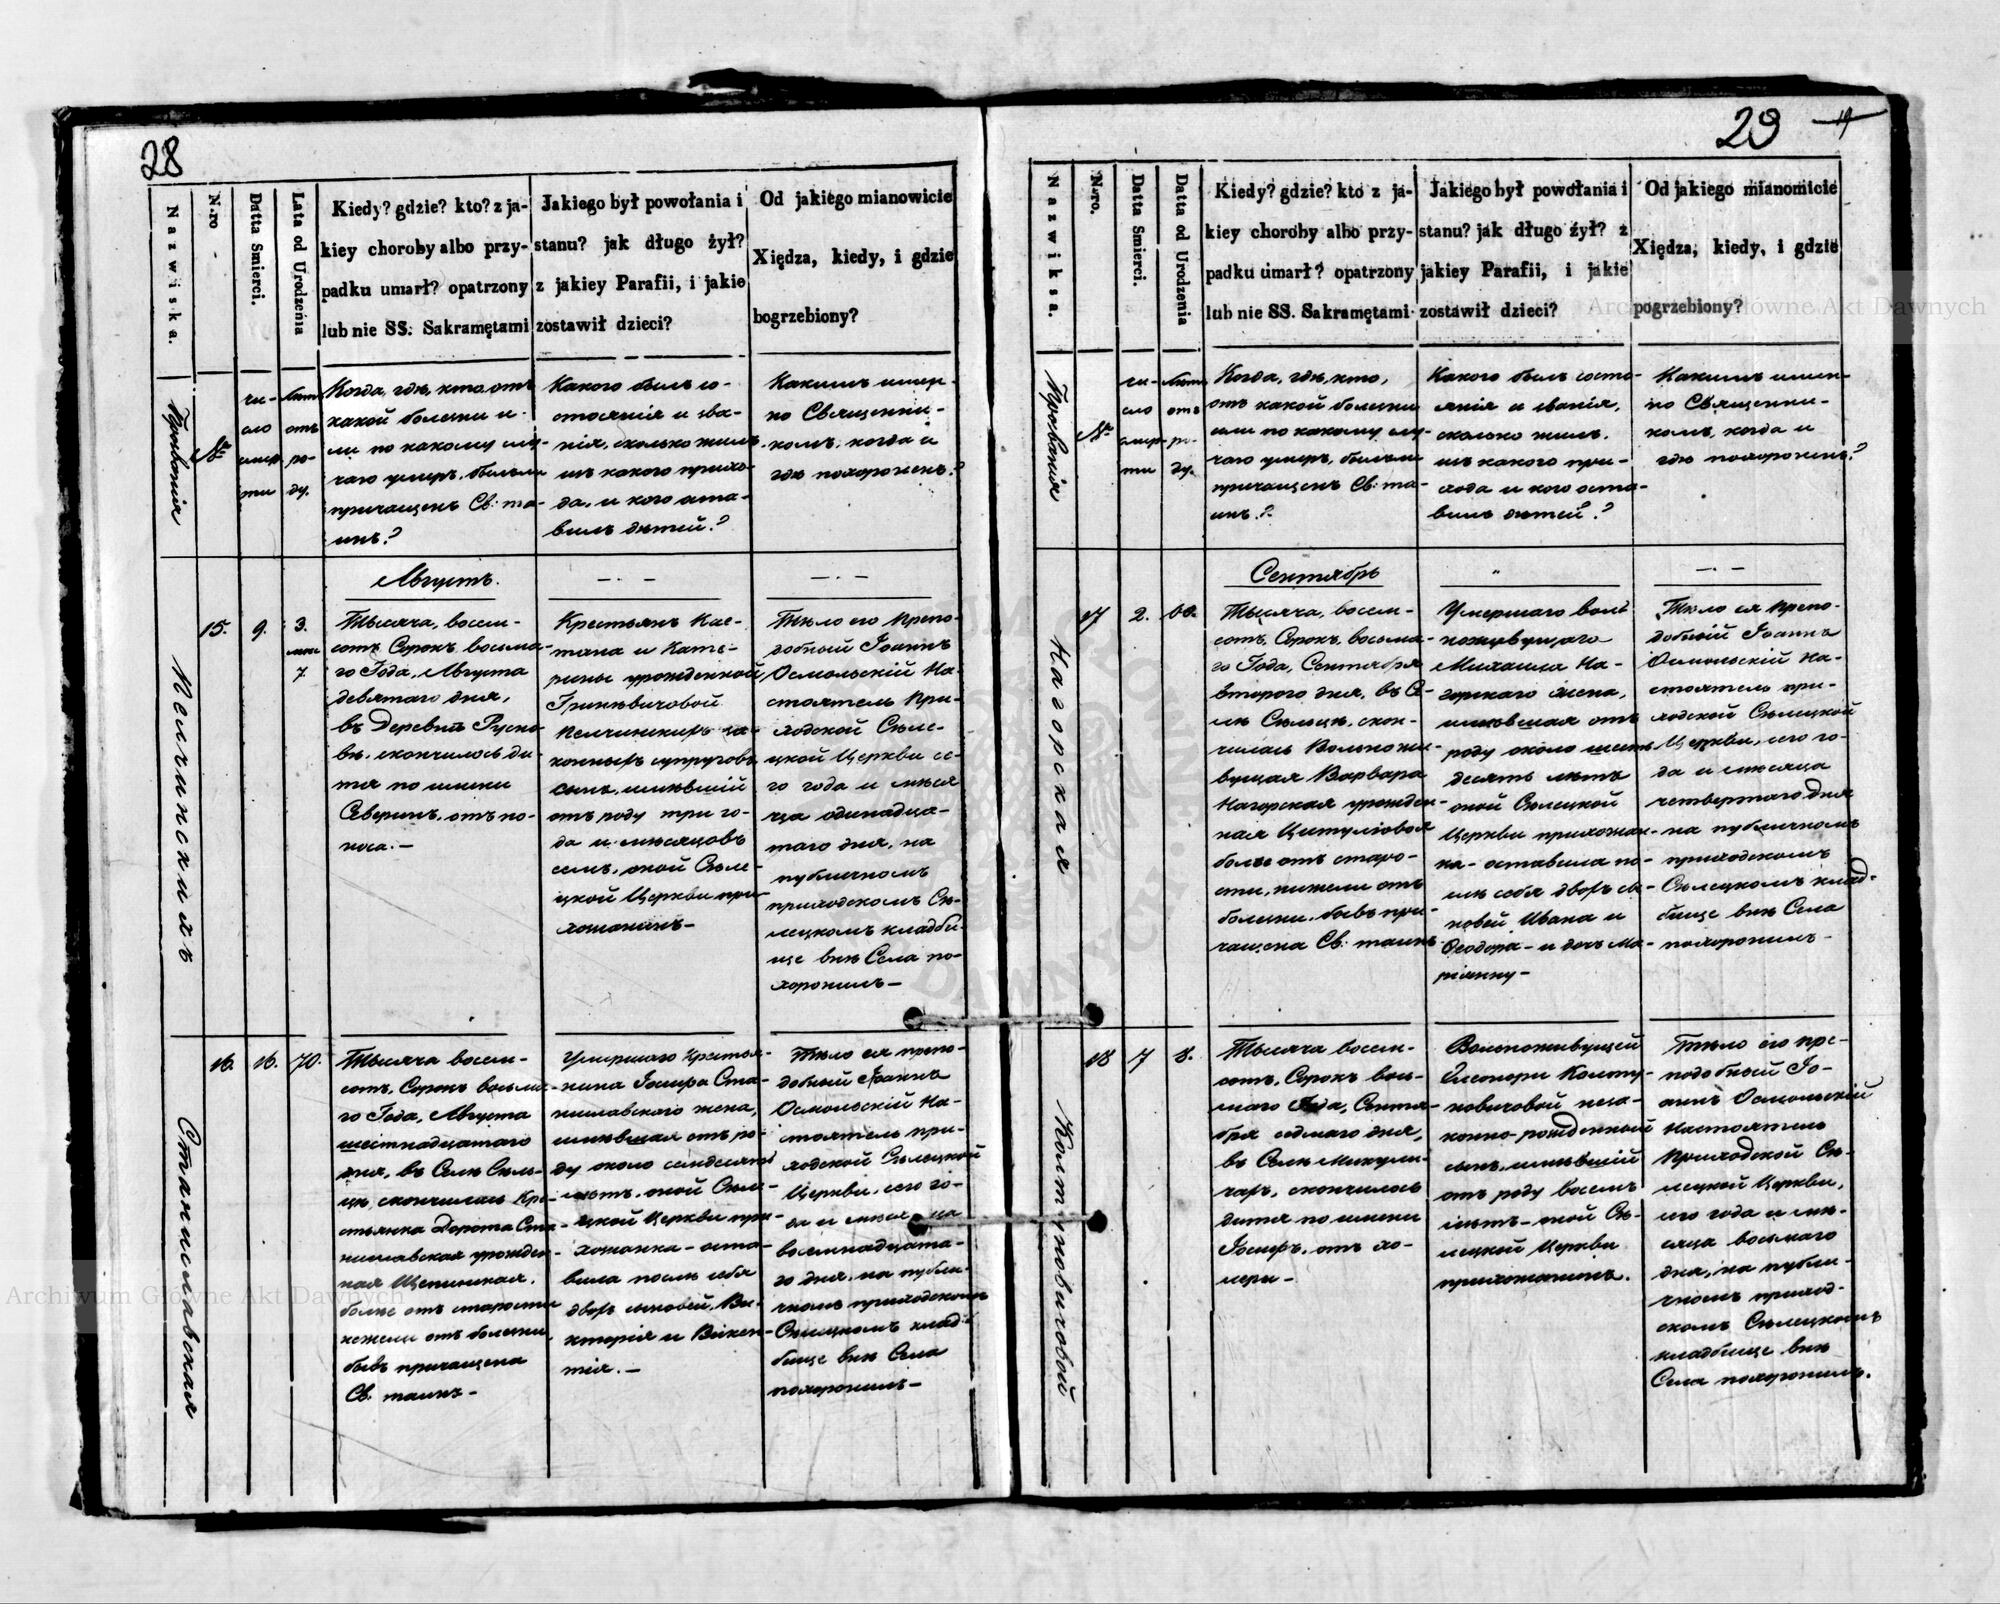 28
Nazwiska.
N.ro
Datta Smierci.
Lata od Urodzenia
Kiedy? gdzie? kto? z ja-
kiey choroby albo przy-
padku umarł? opatrzony
lub nie SS. Sakramętami
Jakiego był powołania i
stanu? jak długo żył?
z jakiey Parafii, i jakie
zostawił dzieci?
Od jakiego mianowicie
Xiędza, kiedy, i gdzie
bogrzebiony?
Прозванія
№
чи-
сло
смер-
ти
Лѣта
отъ
ро-
ду.
Когда, гдѣ, кто, отъ
какой болѣзни и-
ли по какому слу-
чаю умеръ, былъ ли
причащенъ Св: та-
инъ?
Какого былъ со-
стоянія и зва-
нія, сколько жилъ
изъ какого прихо-
да, и кого оста-
вилъ дѣтей?
Какимъ имен-
но Священни-
комъ, когда и
гдѣ похороненъ?
Августъ.
Пелчинскихъ
15.
9.
3.
мѣс
7.
Тысяча, восем-
сотъ, Сорокъ восьма-
го Года, Августа
девятаго дня,
въ Деревнѣ Русно-
вѣ, скончилось ди-
тя по имени
Северинъ, отъ по-
носа. —
Крестьянъ Кае-
тана и Кате-
рины урожденной
Гриневичовой
Пелчинскихъ за-
конныхъ супруговъ
сынъ, имѣвшій
отъ роду три го-
да и мѣсяцовъ
семь, оной Сѣле-
цкой Церкви при-
хожанинъ —
Тѣло его Препо-
добный Іоаннъ
Осмольскій На-
стоятель При-
ходской Сѣле-
цкой Церкви се-
го года и мѣся
ца одинадца-
таго дня, на
публичномъ
приходскомъ Сѣ-
лецкомъ кладби-
ще внѣ Села по-
хоронилъ —
Станиславская
16.
16.
70.
Тысяча восем-
сотъ, Сорокъ восьма-
го Года, Августа
шестнадцатаго
дня, въ Селѣ Сѣль-
цѣ, скончилась Кре-
стьянка Дорота Ста-
ниславская урожден-
ная Щепинская,
болѣе отъ старости
нежели отъ болѣзни,
бывъ причащена
Св. таинъ —
Умершаго Крестья-
нина Іосифа Ста-
ниславского жена,
имѣвшая отъ ро-
ду около семдесятъ
лѣтъ, оной Сѣле-
цкой Церкви при-
хожанка — оста-
вила послѣ себя
двохъ сыновей, Ви-
кторія и Викен-
тія. —
Тѣло ея препо-
добный Іоаннъ
Осмольскій На-
стоятель при-
ходской Сѣлецкой
Церкви, сего го-
да и мѣсяца
восемнадцата-
го дня, на публи-
чномъ приходскомъ
Сѣлецкомъ клад-
бище внѣ Села
похоронилъ —
29
19
Nazwiksa.
N-ro.
Datta Smierci.
Datta od Urodzenia
Kiedy? gdzie? kto z ja-
kiey choroby albo przy-
padku umarł? opatrzony
lub nie SS. Sakramętami
Jakiego był powołania i
stanu? jak długo żył? z
jakiey Parafii, i jakie
zostawił dzieci?
Od jakiego mianomicie
Xiędza, kiedy, i gdzie
pogrzebiony?
Прозванія
№
чи-
сло
смер-
ти
Лѣта
отъ
ро-
ду.
Когда, гдѣ, кто,
отъ какой болѣзни
или по какому слу-
чаю умеръ, былъ ли
причащенъ Св: та-
инъ?
Какого былъ состо-
янія и званія,
сколько жилъ,
изъ какого при-
хода и кого оста-
вилъ дѣтей?
Какимъ имен-
но Священни-
комъ, когда и
гдѣ похороненъ?
Сентябрь
Нагорская
17
2.
60.
Тысяча, восем-
сотъ, Сорокъ, восьма-
го Года, Сентября
второго дня, въ Се-
лѣ Сѣльцѣ, скон-
чилась Вольножи-
вущая Варвара
Нагорская урожден-
ная Цитулювой
болѣе отъ старо-
сти, нежели отъ
болѣзни, бывъ при-
чащена Св. таинъ
Умершаго воль-
ноживущаго
Михаила На-
горскаго жена,
имѣвшая отъ
роду около шесть
десятъ лѣтъ
оной Сѣлецкой
Церкви прихожан-
ка — оставила по-
слѣ себя двохъ сы-
новей Ивана и
Ѳеодора — и дочь Ма-
ріянну —
Тѣло ея Препо-
добный Іоаннъ
Осмольскій На-
стоятель при-
ходской Сѣлецкой
Церкви, сего го-
да и мѣсяца
четвертаго дня
на публичномъ
приходскомъ
Сѣлецкомъ клад-
бище внѣ Села
похоронилъ —
Колтуновичовой
18
7
8.
Тысяча восем-
сотъ, Сорокъ вось-
маго Года, Сентя-
бря седмаго дня,
въ Селѣ Микули-
чахъ, скончилось
дитя по имени
Іосифъ, отъ хо-
леры —
Вольноживущей
Елеоноры Колту-
новичовой неза-
конно-рожденный
сынъ, имѣвшій
отъ роду восемь
лѣтъ — оной Сѣ-
лецкой Церкви
прихожанинъ.
Тѣло его пре-
подобный Іо-
аннъ Осмольскій
Настоятель
Приходской Сѣ-
лецкой Церкви,
сего года и мѣ-
сяца восьмаго
дня, на публи-
чномъ приход-
скомъ Сѣлецкомъ
кладбище внѣ
Села похоронилъ.
Archiwum Główne Akt Dawnych
Archiwum Główne Akt Dawnych